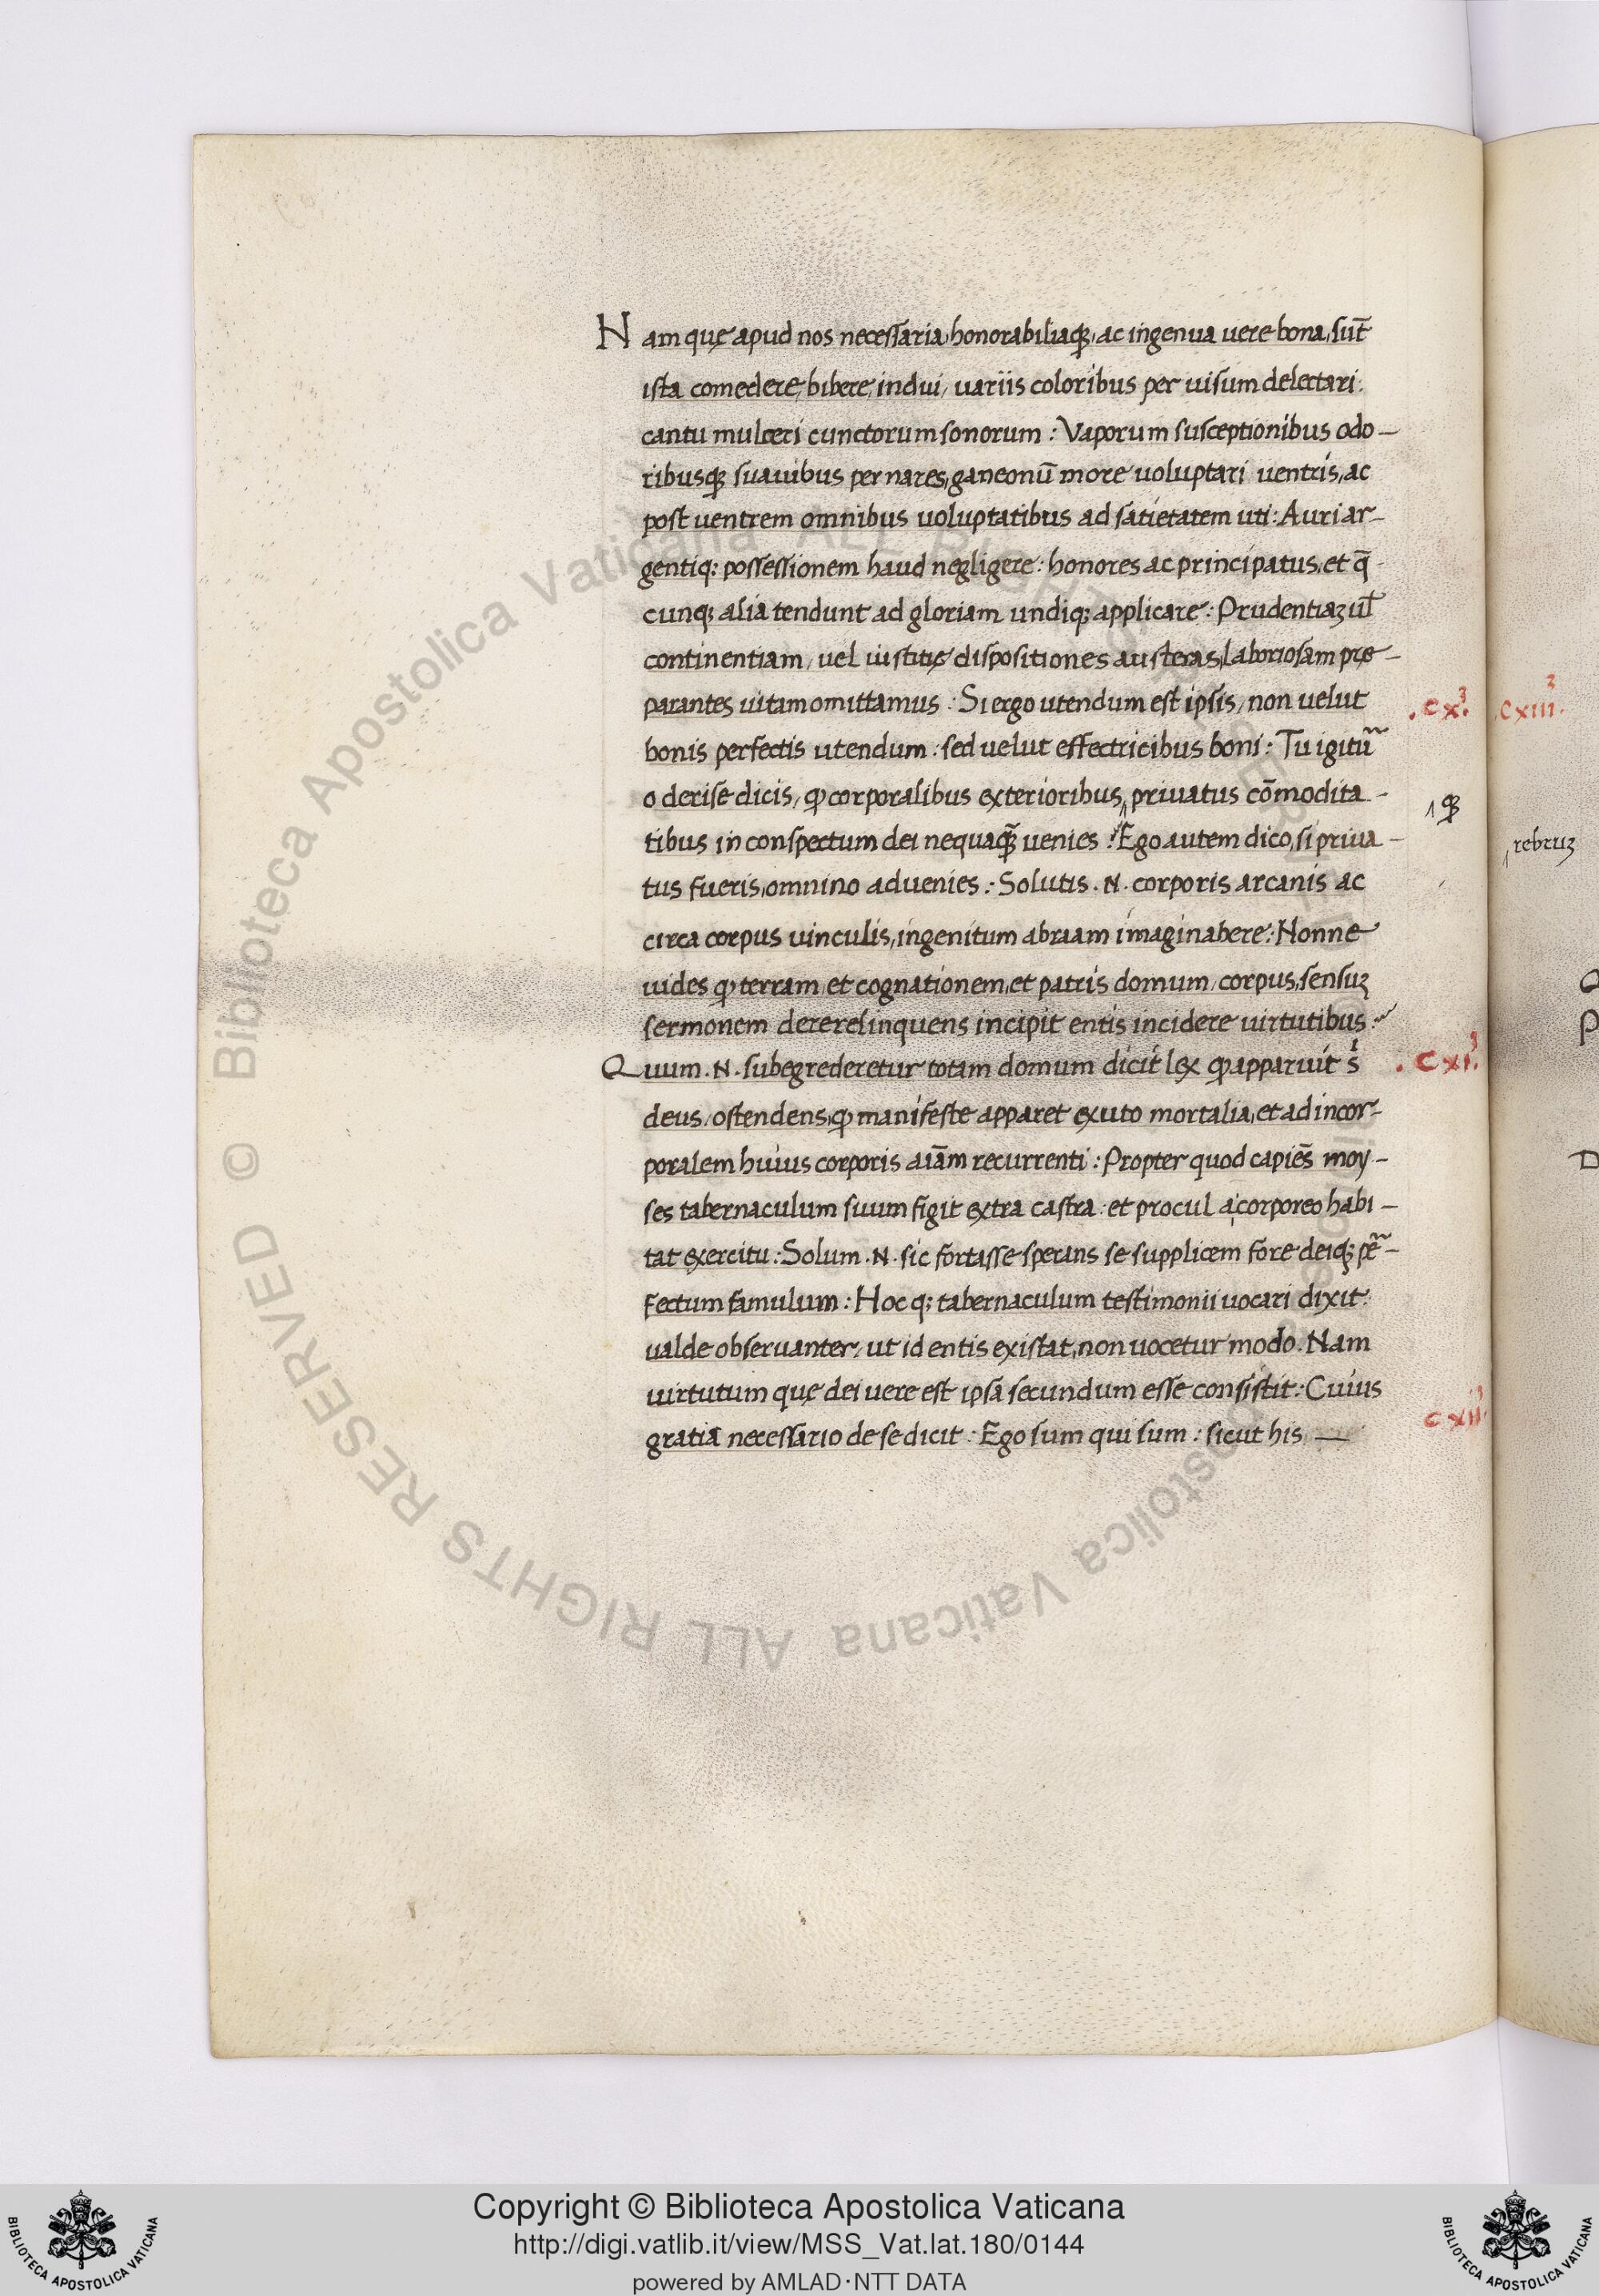 Nam quę apud nos necessaria, honorabiliaqȝ, ac ingenua uere bona, sūt
ista comedere, bibere, indui, uariis coloribus per uisum delectari:
cantu mulceri cunctorum sonorum: Vaporum susceptionibus odo-
ribusqȝ suauibus per nares, ganeonū more uoluptari uentris, ac
post uentrem omnibus uoluptatibus ad satietatem uti: Auri ar-
gentiq; possessionem haud negligere: honores ac principatus, et q̄
cunq; alia tendunt ad gloriam undiq; applicare: Prudentiaȝ ul̄
continentiam, uel iustitię dispositiones austeras, laboriosam prę-
parantes uitam omittamus: Si ergo utendum est ipsis, non uelut
.cx.³
bonis perfectis utendum: sed uelut effectricibus boni: Tu igitu᷉
o derise dicis, ꝙ corporalibus exterioribus, priuatus cōmodita-
qȝ
tibus in conspectum dei nequaqȝ̄ uenies: Ego autem dico, si priua-
tus fueris, omnino aduenies: Solutis .N. corporis arcanis ac
circa corpus uinculis, ingenitum abraam imaginabere: Nonne
uides ꝙ terram et cognationem, et patris domum, corpus, sensuȝ
sermonem dererelinquens incipit entis incidere uirtutibus:
Quum .N. subegrederetur totam domum dicit lex ꝙ apparuit s̓
.cxi.³
deus, ostendens, ꝙ manifeste apparet exuto mortalia, et ad incor-
poralem huius corporis aīam recurrenti: Propter quod capiēs moy-
ses tabernaculum suum figit extra castra: et procul a corporeo habi-
tat exercitu: Solum .N. sic fortasse sperans se supplicem fore deiq; pe᷉-
fectum famulum: Hoc q; tabernaculum testimonii uocari dixit:
ualde obseruanter, ut id entis existat, non uocetur modo. Nam
uirtutum quę dei uere est ipsa secundum esse consistit: Cuius
cxii.³
gratia necessario de se dicit: Ego sum qui sum: sicut his —
.cxiii.³
rebruȝ
Copyright © Biblioteca Apostolica Vaticana
http://digi.vatlib.it/view/MSS_Vat.lat.180/0144
powered by AMLAD·NTT DATA
BIBLIOTECA APOSTOLICA VATICANA
BIBLIOTECA APOSTOLICA VATICANA